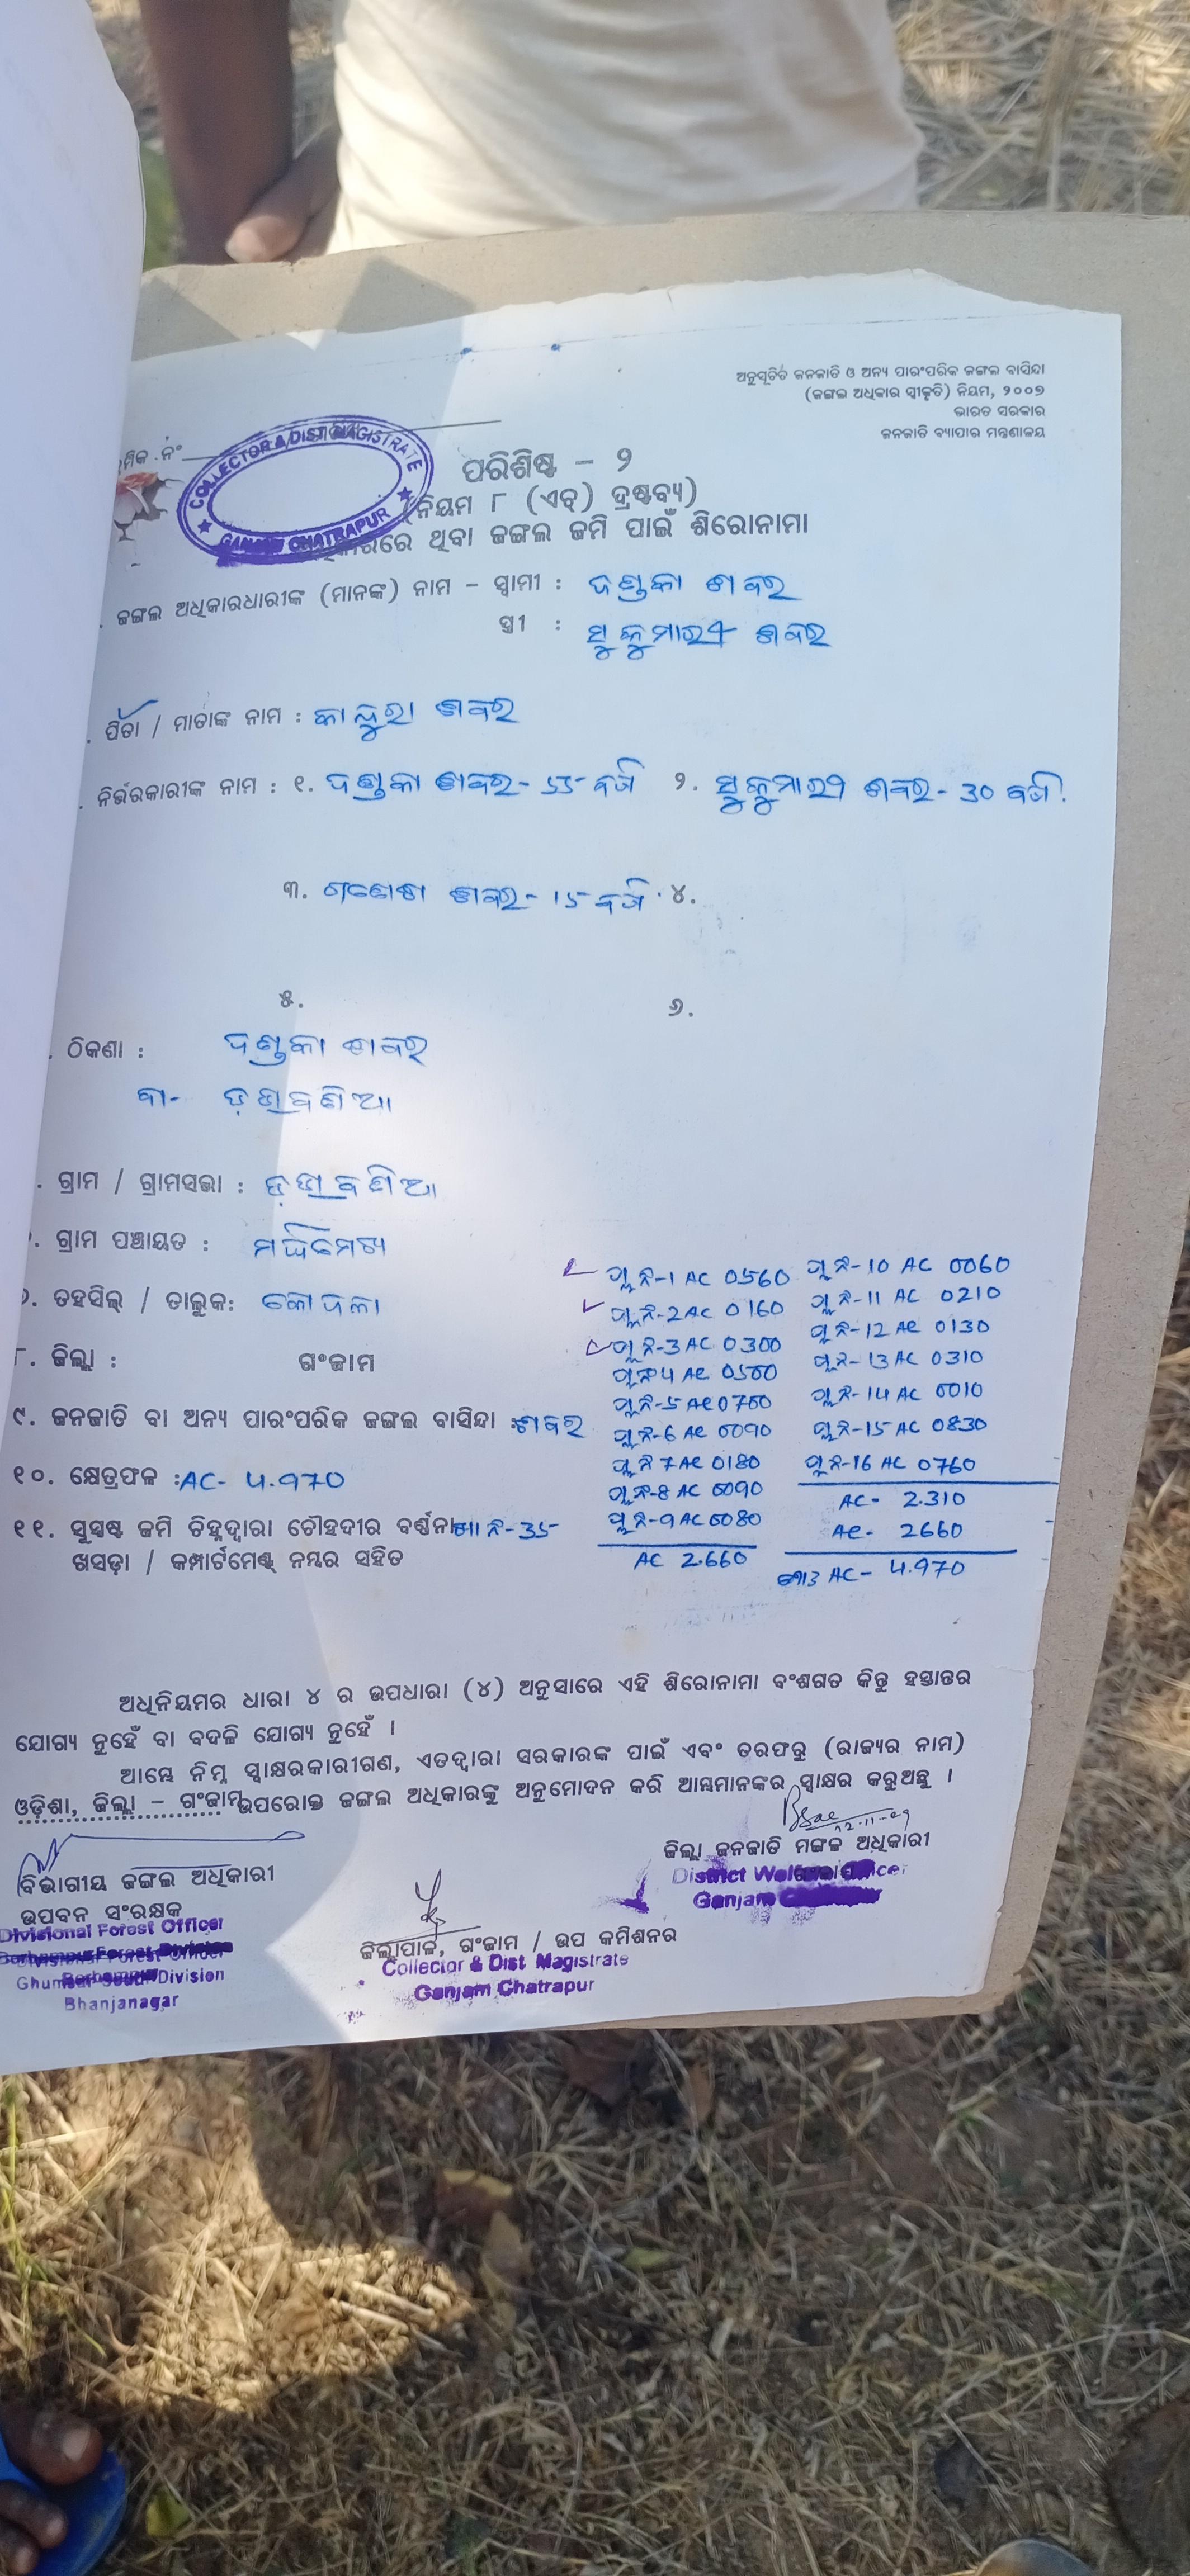 ଅନୁସୂଚିତ ଜନଜାତି ଓ ଅନ୍ୟ ପାରଂପରିକ ଜଙ୍ଗଲ ବାସିନ୍ଦା
(ଜଙ୍ଗଲ ଅଧିକାର ସ୍ୱୀକୃତି) ନିୟମ, ୨୦୦୭
ଭାରତ ସରକାର
ଜନଜାତି ବ୍ୟାପାର ମନ୍ତ୍ରଣାଳୟ
ମିକ ନଂ
COLLECTOR & DIST MAGISTRATE
GANJAM CHATRAPUR
ପରିଶିଷ୍ଟ – ୨
(ନିୟମ ୮ (ଏଚ୍) ଦ୍ରଷ୍ଟବ୍ୟ)
ଥିବା ଜଙ୍ଗଲ ଜମି ପାଇଁ ଶିରୋନାମା
. ଜଙ୍ଗଲ ଅଧିକାରଧାରୀଙ୍କ (ମାନଙ୍କ) ନାମ – ସ୍ୱାମୀ : ଦଣ୍ଡକା ଶବର
ସ୍ତ୍ରୀ : ସୁକୁମାରୀ ଶବର
. ପିତା / ମାତାଙ୍କ ନାମ : ଶବର
. ନିର୍ଭରକାରୀଙ୍କ ନାମ : ୧. ଦଣ୍ଡକା ଶବର - 55 ବର୍ଷ ୨. ସୁକୁମାରୀ ଶବର - 30 ବର୍ଷ.
୩. ଗଣେଶ ଶବର - 15 ବର୍ଷ. ୪.
୫. ୬.
. ଠିକଣା : ଦଣ୍ଡକା ଶବର
. ଗ୍ରାମ / ଗ୍ରାମସଭା :
. ଗ୍ରାମ ପଞ୍ଚାୟତ :
. ତହସିଲ୍ / ତାଲୁକ: କୋଦଳା
୮. ଜିଲ୍ଲା : ଗଂଜାମ
୯. ଜନଜାତି ବା ଅନ୍ୟ ପାରଂପରିକ ଜଙ୍ଗଲ ବାସିନ୍ଦା : ଶବର
୧୦. କ୍ଷେତ୍ରଫଳ : AC- 4.970
୧୧. ସୁସ୍ପଷ୍ଟ ଜମି ଚିହ୍ନଦ୍ୱାରା ଚୌହଦୀର ବର୍ଣ୍ଣନା ନଂ-35
ଖସଡ଼ା / କମ୍ପାର୍ଟମେଣ୍ଟ୍ ନମ୍ବର ସହିତ
ପ୍ଲ ନଂ-1 AC 0560
ପ୍ଲ ନଂ-2 AC 0160
ପ୍ଲ ନଂ-3 AC 0300
ପ୍ଲ ନଂ 4 AC
ପ୍ଲ ନଂ-5 AC
ପ୍ଲ ନଂ-6 AC 0090
ପ୍ଲ ନଂ 7 AC 0180
ପ୍ଲ ନଂ-8 AC 0090
ପ୍ଲ ନଂ-9 AC 0080
AC 2.660
ପ୍ଲ ନଂ-10 AC 0060
ପ୍ଲ ନଂ-11 AC 0210
ପ୍ଲ ନଂ-12 AC 0130
ପ୍ଲ ନଂ-13 AC 0310
ପ୍ଲ ନଂ-14 AC 0010
ପ୍ଲ ନଂ-15 AC 0830
ପ୍ଲ ନଂ-16 AC 0760
AC- 2.310
AC- 2660
AC- 4.970
ଅଧିନିୟମର ଧାରା ୪ ର ଉପଧାରା (୪) ଅନୁସାରେ ଏହି ଶିରୋନାମା ବଂଶଗତ କିନ୍ତୁ ହସ୍ତାନ୍ତର
ଯୋଗ୍ୟ ନୁହେଁ ବା ବଦଳି ଯୋଗ୍ୟ ନୁହେଁ ।
ଆମ୍ଭେ ନିମ୍ନ ସ୍ୱାକ୍ଷରକାରୀଗଣ, ଏତଦ୍ୱାରା ସରକାରଙ୍କ ପାଇଁ ଏବଂ ତରଫରୁ (ରାଜ୍ୟର ନାମ)
ଓଡ଼ିଶା, ଜିଲ୍ଲା – ଗଂଜାମ ଉପରୋକ୍ତ ଜଙ୍ଗଲ ଅଧିକାରଙ୍କୁ ଅନୁମୋଦନ କରି ଆମ୍ଭମାନଙ୍କର ସ୍ୱାକ୍ଷର କରୁଅଛୁ ।
ବିଭାଗୀୟ ଜଙ୍ଗଲ ଅଧିକାରୀ
ଉପବନ ସଂରକ୍ଷକ
Divisional Forest Officer
Ghumsur South Division
Bhanjanagar
ଜିଲ୍ଲାପାଳ, ଗଂଜାମ / ଉପ କମିଶନର
Collector & Dist Magistrate
Ganjam Chatrapur
ଜିଲ୍ଲା ଜନଜାତି ମଙ୍ଗଳ ଅଧିକାରୀ
District Welfare Officer
Ganjam